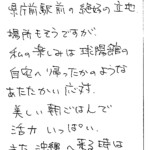 県庁前駅前の絶好の立地
場所もそうですが、
私の楽しみは球陽館の
自宅へ帰ったかのような
あたたかい応対.
美しい朝ごはんで
活力いっぱい。
また沖縄へ来る時は